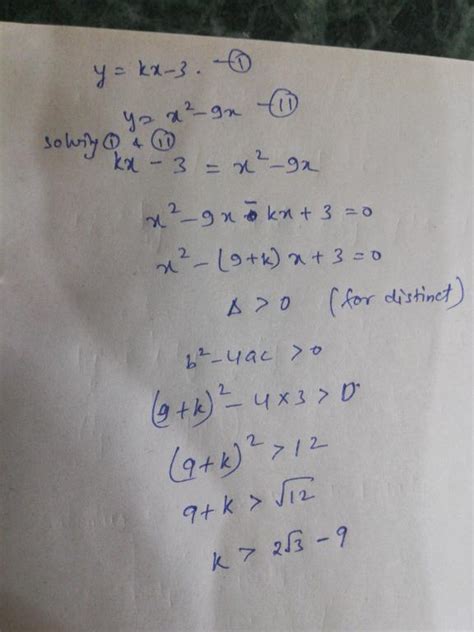 y = kx - 3. - ①
y = x² - 9x - ⑪
solving ① & ⑪
kx - 3 = x² - 9x
x² - 9x - kx + 3 = 0
x² - (9+k) x + 3 = 0
Δ > 0 (for distinct)
b² - 4ac > 0
(9+k)² - 4 × 3 > 0
(9+k)² > 12
9 + k > √12
k > 2√3 - 9